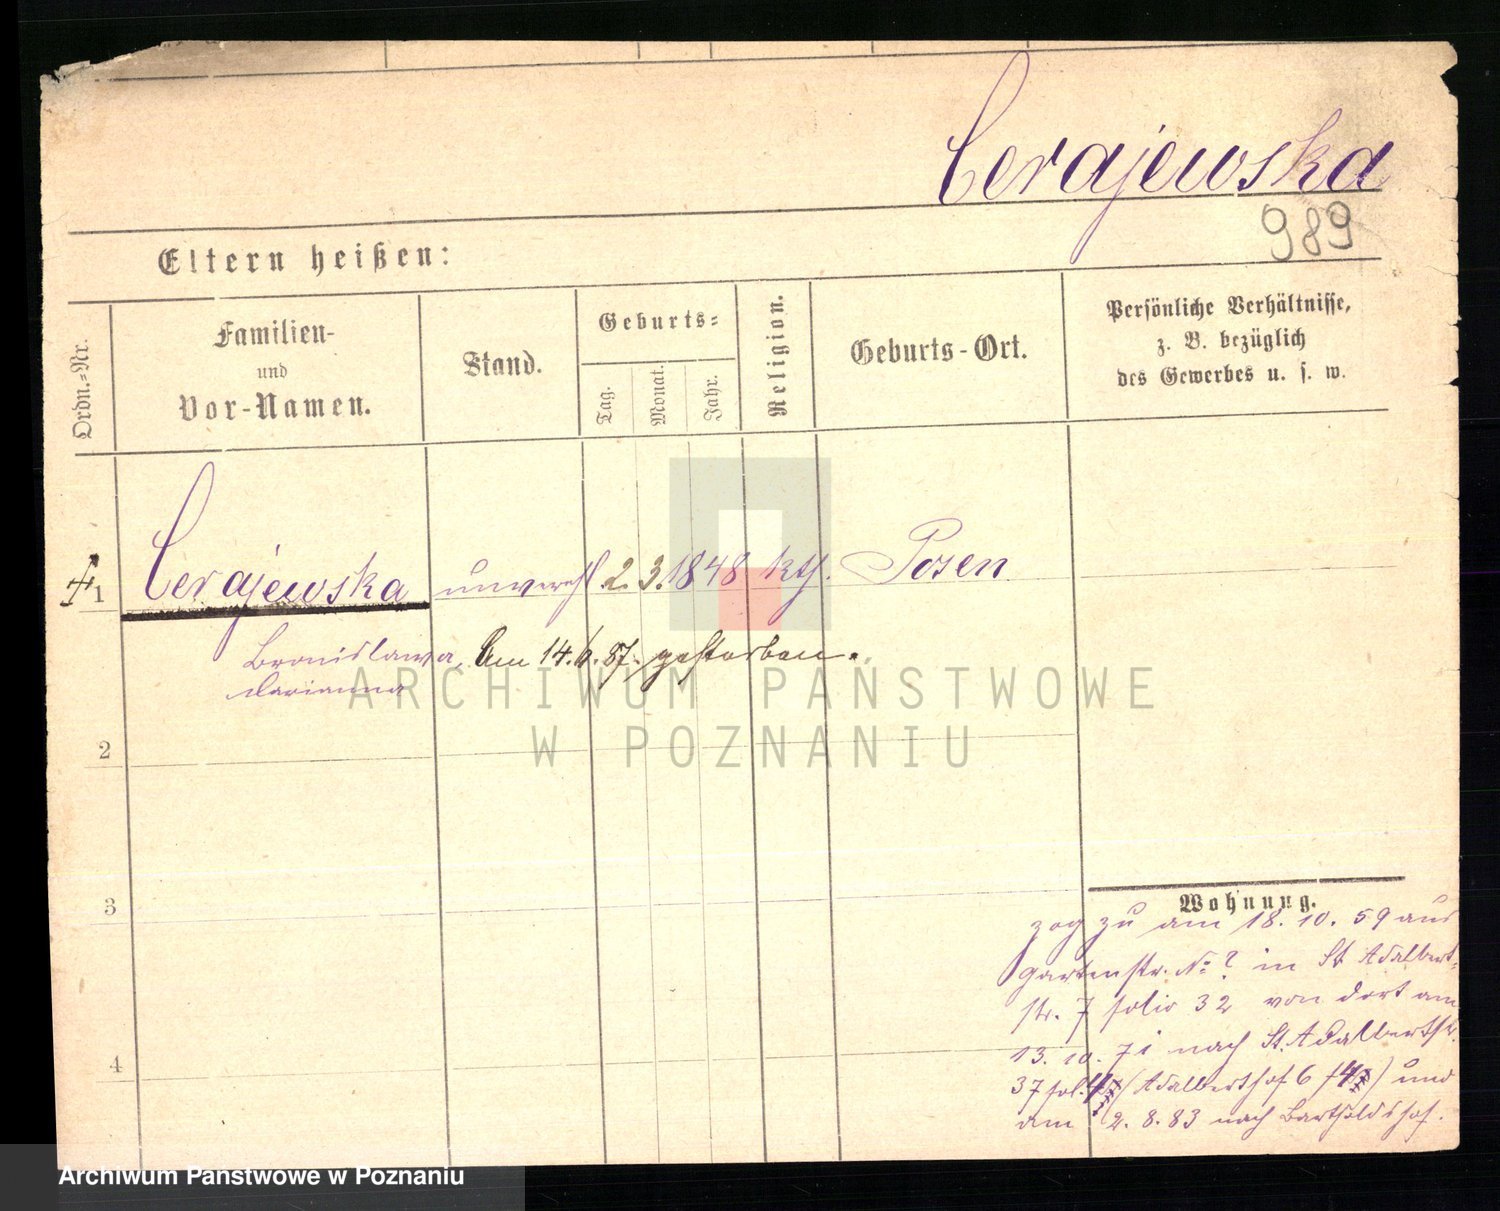 Cerajewska
989
Eltern heißen:
Ordn.-Nr.
Familien-
und
Vor-Namen.
Stand.
Geburts-
Tag.
Monat.
Jahr.
Religion.
Geburts-Ort.
Persönliche Verhältnisse,
z. B. bezüglich
des Gewerbes u. s. w.
1 Cerajewska unverehl. 2. 3. 1848 kth. Posen
Bronislawa, Am 14. 6. 87. gestorben.
Marianna
2
3
4
Wohnung.
zog zu am 18. 10. 59 aus
Gartenstr. No ? in St Adalbert-
str. 7 folio 32 von dort am
13. 10. 71 nach St. Adalbertstr.
37 fol. (Adalbertshof 6 f ) und
am 2. 8. 83 nach Bartholdshof.
ARCHIWUM PAŃSTWOWE
W POZNANIU
Archiwum Państwowe w Poznaniu